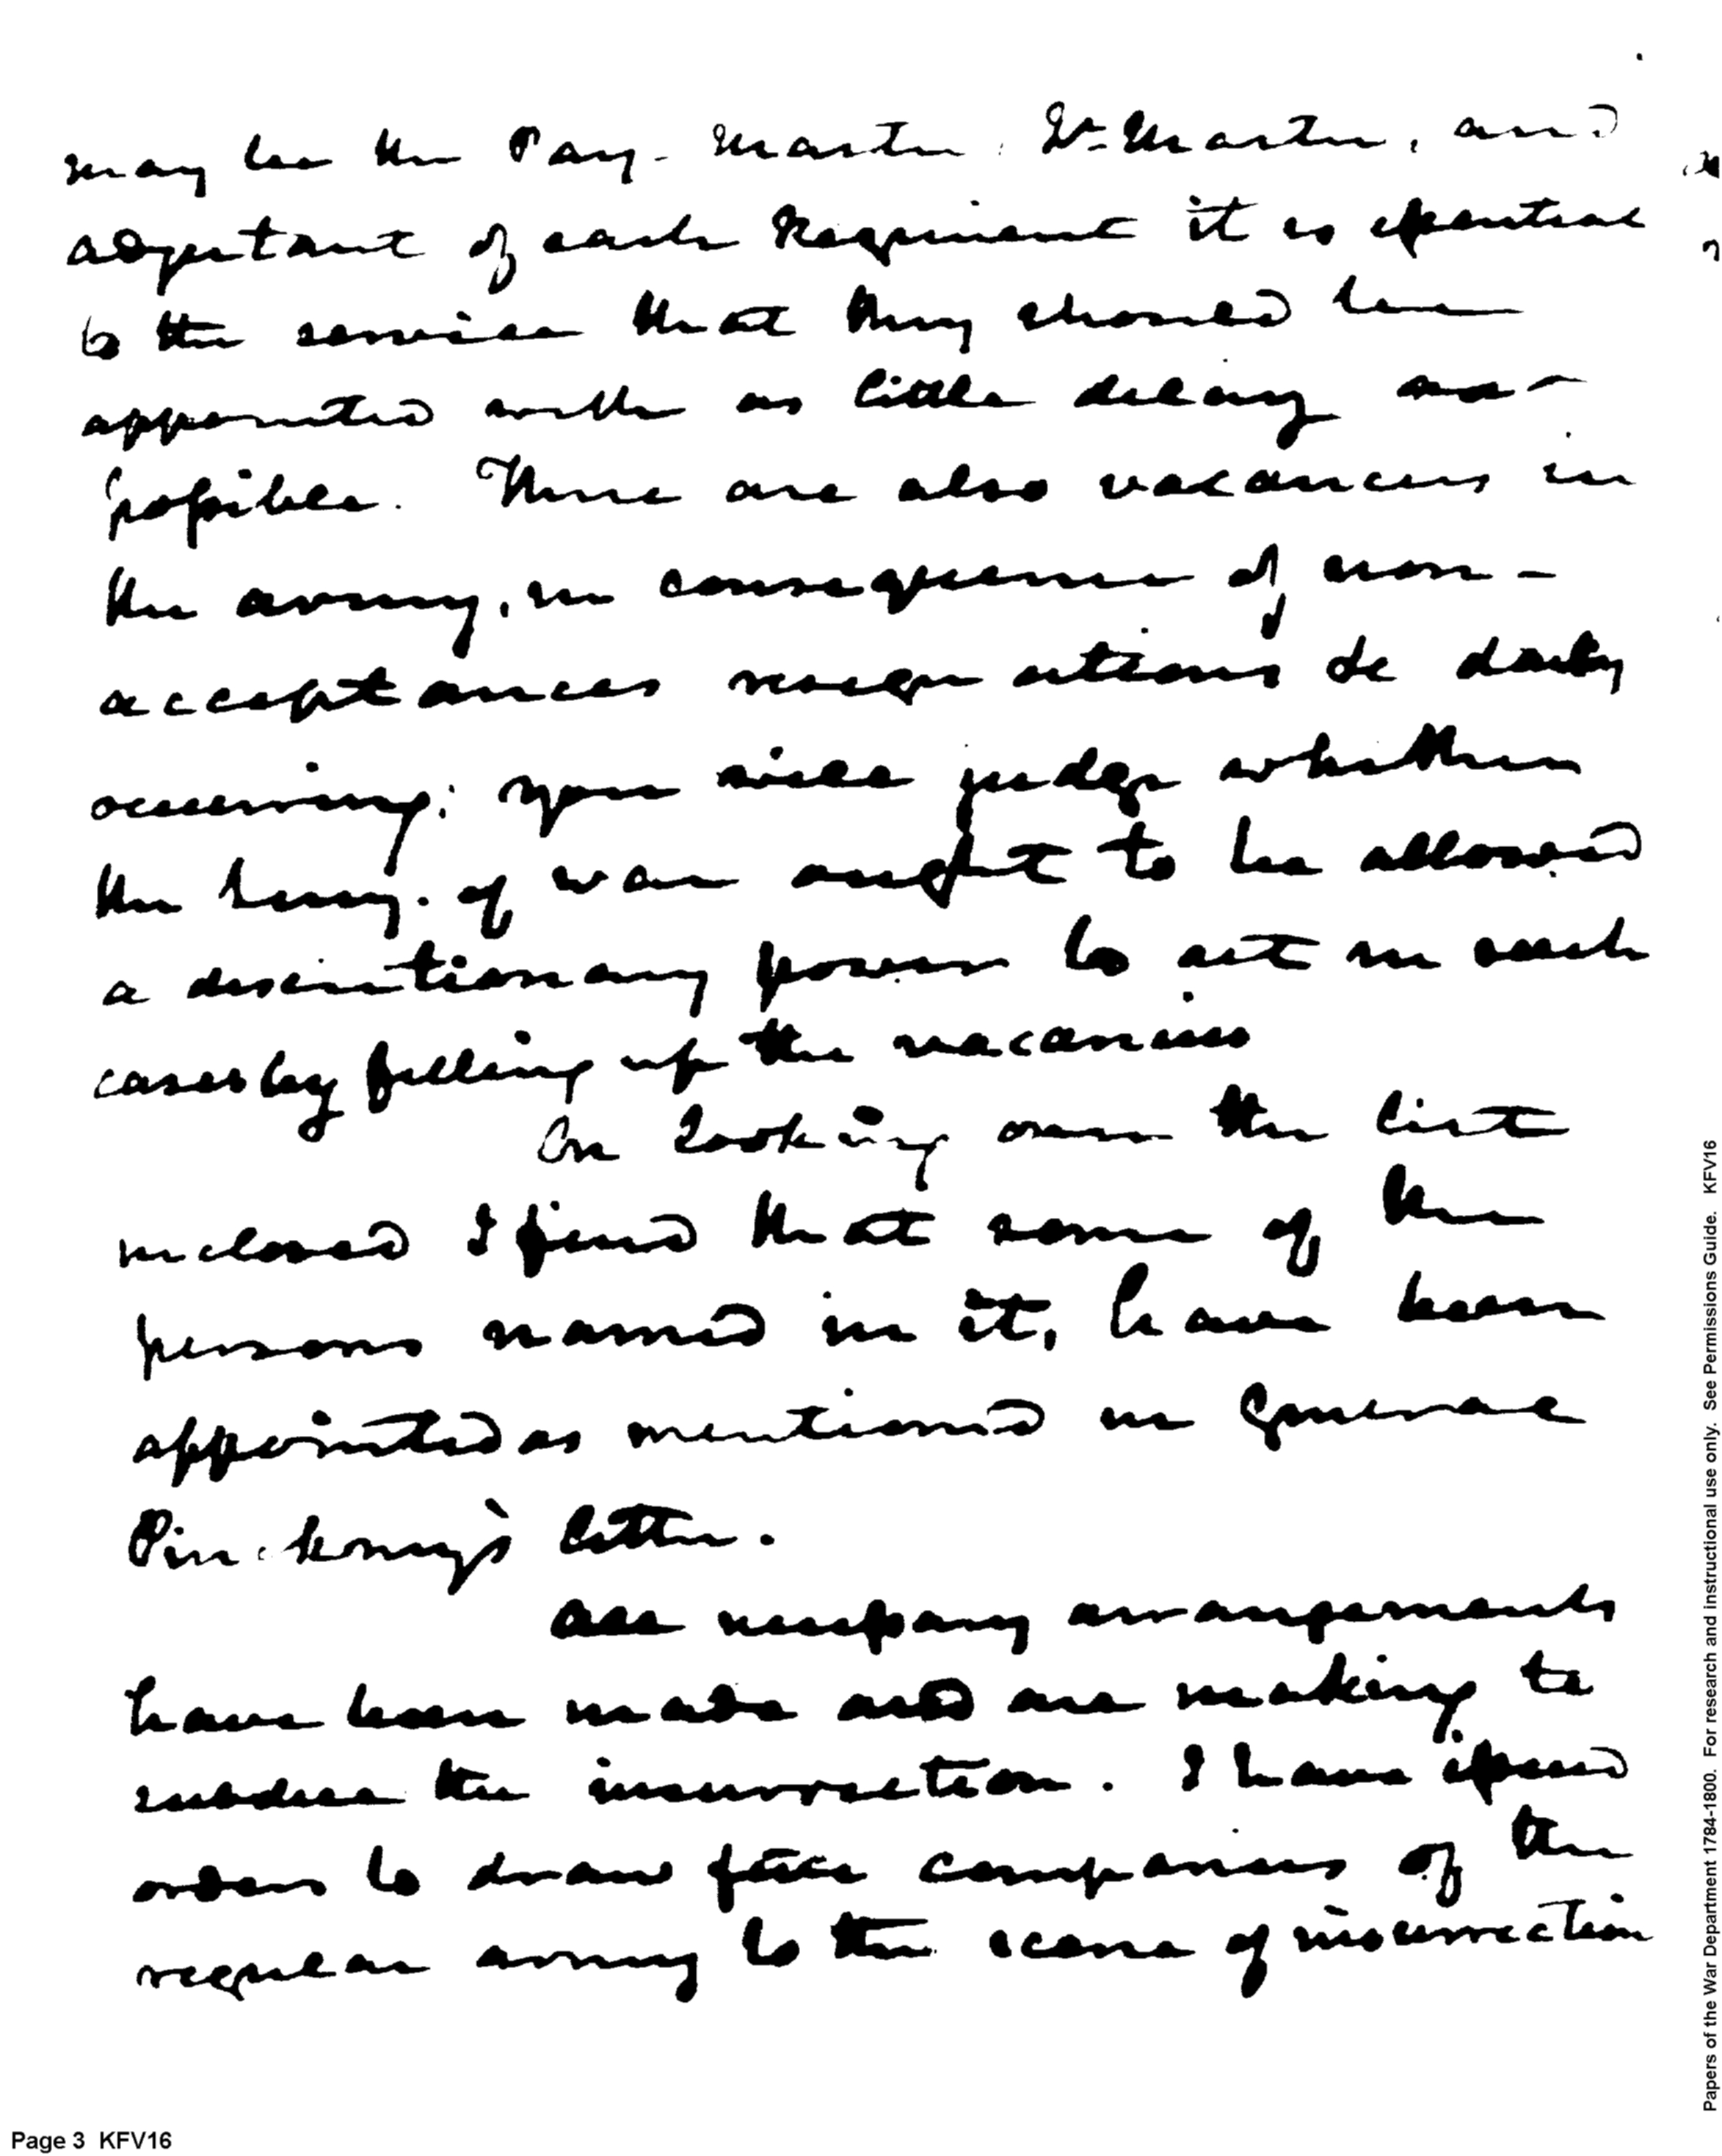 may be the Pay-Master, Qr. Master, and
adjutant of each Regiment it is essential
to the service that they should be
appointed with as little delay as
possible. There are also vacancies in
the army, in consequence of non-
acceptances resignations &c daily
occurring: you will judge whether
the Secy. of war ought to be allowed
a discretionary power to act in such
cases by filling up the vacancies
On looking over the list
inclosed I find that some of the
persons named in it, have been
appointed as mentioned in General
Pinckney's letter.
All necessary arrangements
have been made and are making to
subdue the insurrection. I have issued
orders to draw five companies of the
regular army to the scene of insurrection
Papers of the War Department 1784-1800. For research and instructional use only. See Permissions Guide. KFV16
Page 3 KFV16